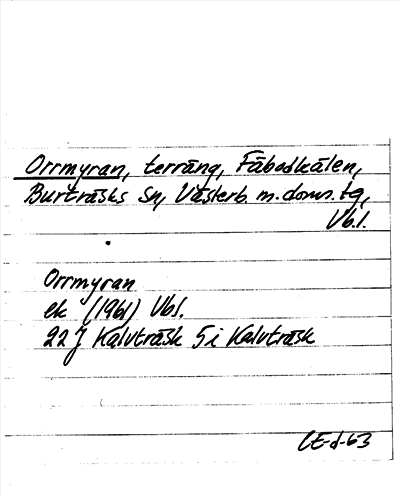 Orrmyran, terräng, Fäbodkälen,
Burträsks sn, Västerb. m. doms. tg,
Vb.l.
Orrmyran
ek (1961) Vbl.
22 J Kalvträsk 5 i Kalvträsk
CE-d-63